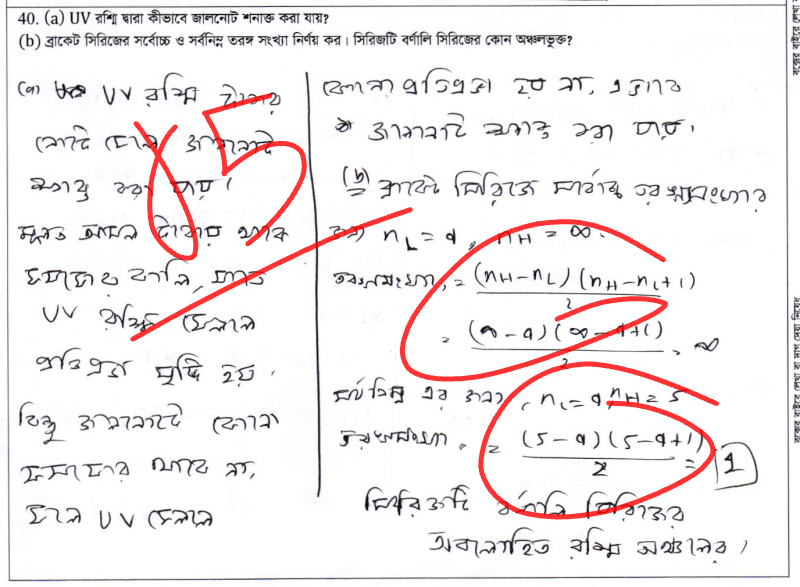 40. (a) UV রশ্মি দ্বারা কীভাবে জালনোট শনাক্ত করা যায়?
(b) ব্রাকেট সিরিজের সর্বোচ্চ ও সর্বনিম্ন তরঙ্গ সংখ্যা নির্ণয় কর। সিরিজটি বর্ণালি সিরিজের কোন অঞ্চলভুক্ত?
(a) UV রশ্মি টাকার
নোটে ফেলে জালনোট
শনাক্ত করা যায়।
মূলত আসল টাকায় থাকে
ফসফোর কালি, যাতে
UV রশ্মি ফেললে
প্রতিপ্রভা সৃষ্টি হয়।
কিন্তু জালনোটে কোনো
ফসফোর থাকে না,
ফলে UV ফেললে
কোনো প্রতিপ্রভা হয় না, এভাবে
জালনোট শনাক্ত করা যায়।
(b) ব্রাকেট সিরিজে সর্বোচ্চ তরঙ্গসংখ্যার
জন্য n_L = 4, n_H = ∞.
তরঙ্গসংখ্যা, = (n_H-n_L)(n_H-n_L+1) / 2
= (∞-4)(∞-4+1) / 2 = ∞
সর্বনিম্ন এর জন্য, n_L = 4, n_H = 5
তরঙ্গসংখ্যা, = (5-4)(5-4+1) / 2 = 1
সিরিজটি বর্ণালি সিরিজের
অবলোহিত রশ্মি অঞ্চলের।
15